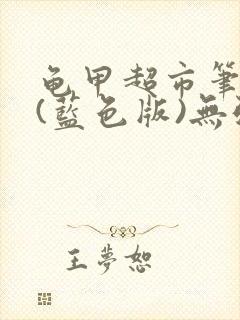 龟甲超市筆
(藍色版)無
王夢恕